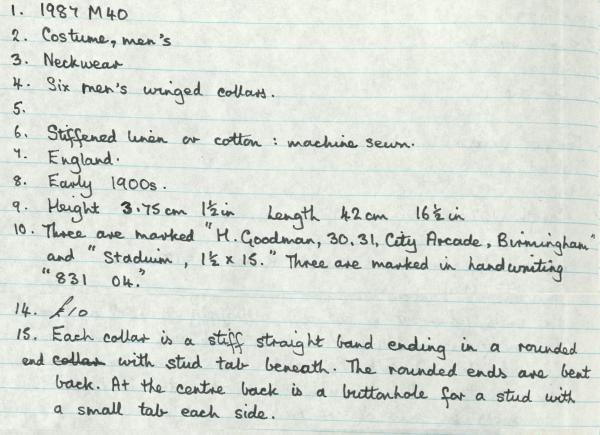 1. 1987 M40
2. Costume, men's
3. Neckwear
4. Six men's winged collars.
5.
6. Stiffened linen or cotton : machine sewn.
7. England.
8. Early 1900s.
9. Height 3.75cm 1½in Length 42cm 16½in
10. Three are marked "H. Goodman, 30.31, City Arcade, Birmingham"
and "Stadium, 1½ x 15." Three are marked in handwriting
"831 04."
14. £10
15. Each collar is a stiff straight band ending in a rounded
end collar with stud tab beneath. The rounded ends are bent
back. At the centre back is a buttonhole for a stud with
a small tab each side.